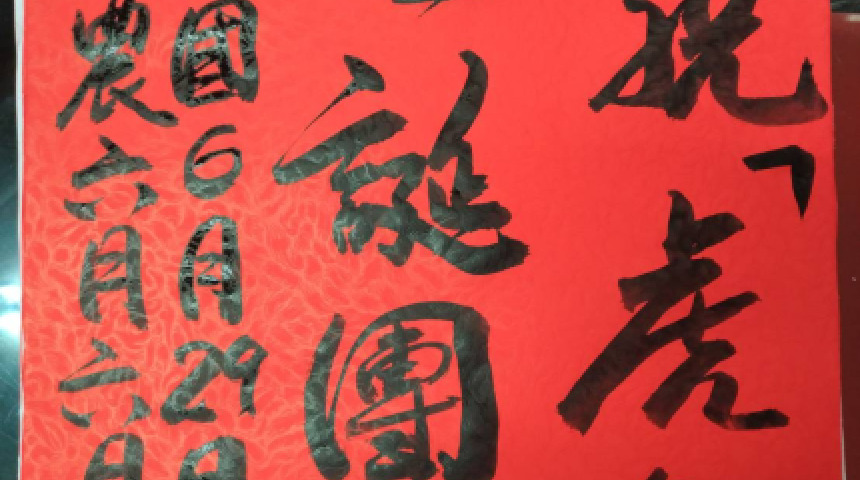 祝「虎
誕團
國6月29日
農六月六日